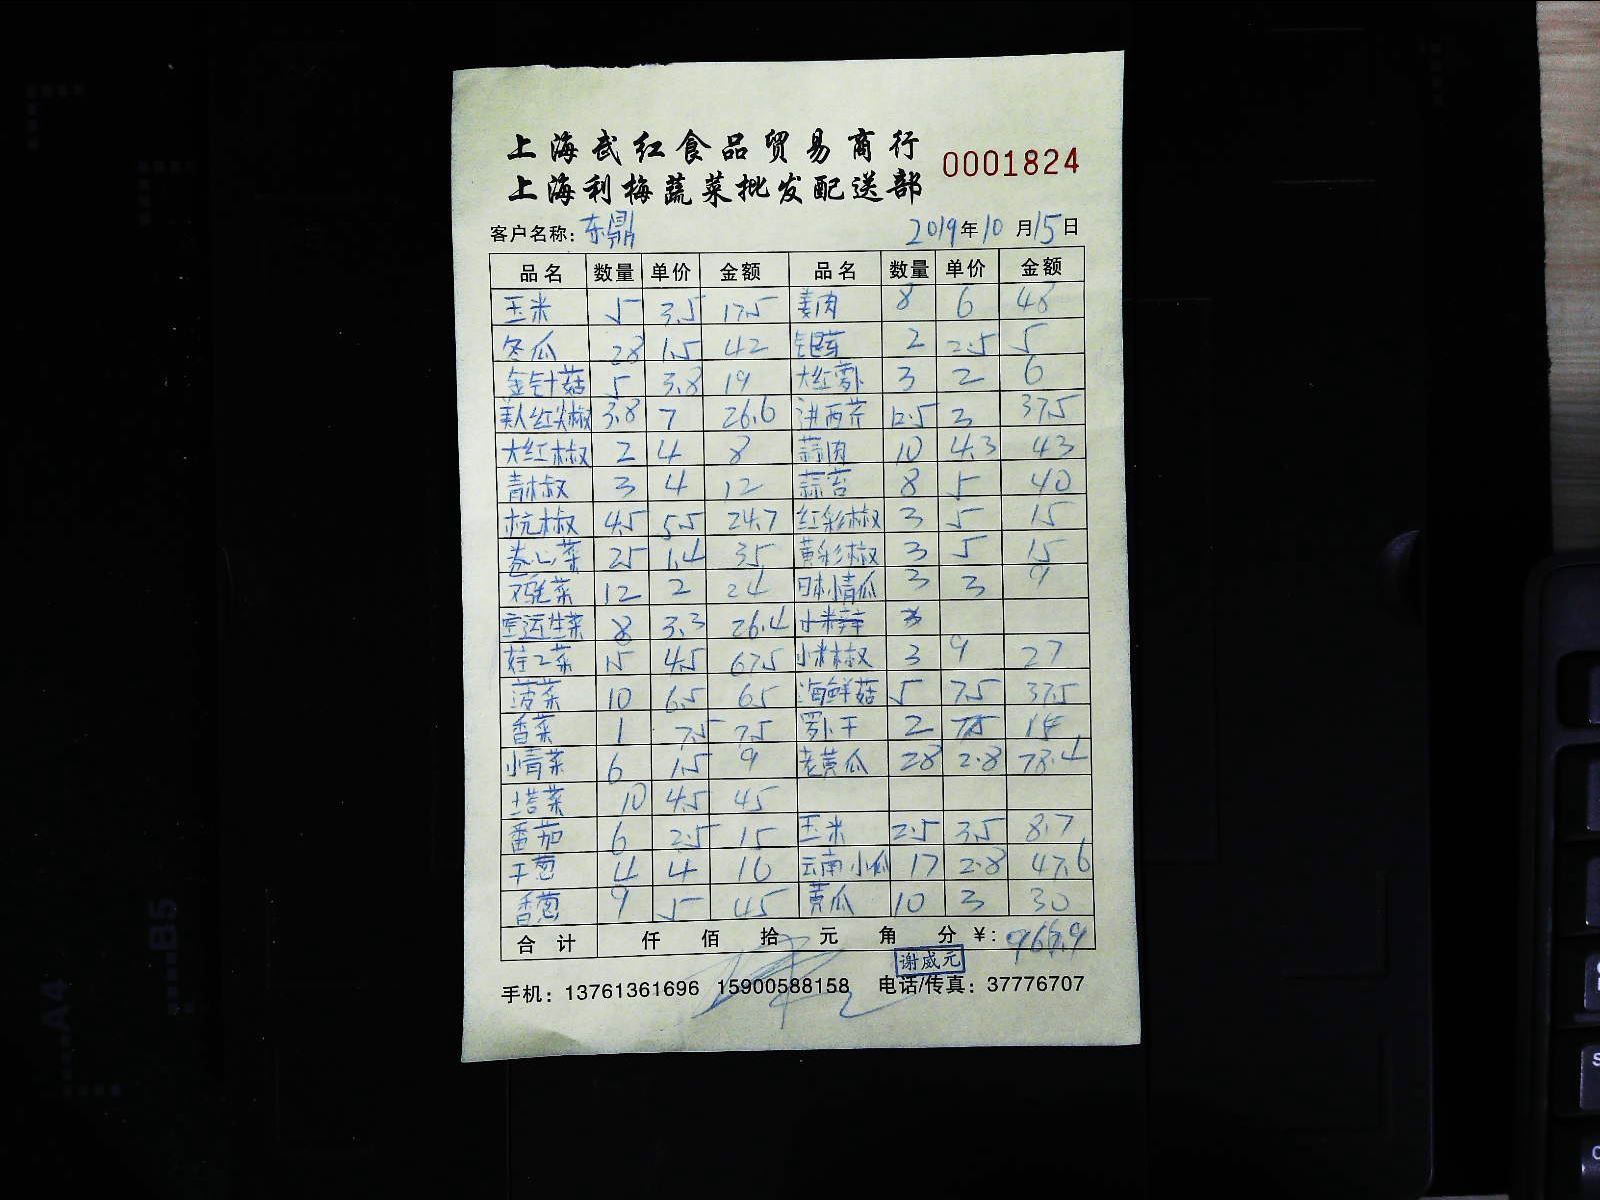 上海武红食品贸易商行
上海利梅蔬菜批发配送部
0001824
客户名称：东鼎 2019年10月15日
品名 数量 单价 金额 品名 数量 单价 金额
玉米 5 3.5 17.5 姜肉 8 6 48
冬瓜 28 1.5 42 2 2.5 5
金针菇 5 3.8 19 大红萝卜 3 2 6
美人红尖椒 3.8 7 26.6 进西芹 12.5 3 37.5
大红椒 2 4 8 蒜肉 10 4.3 43
青椒 3 4 12 蒜苔 8 5 40
杭椒 4.5 5.5 24.7 红彩椒 3 5 15
卷心菜 25 1.4 35 黄彩椒 3 5 15
12 2 24 日本小青瓜 3 3 9
空运生菜 8 3.3 26.4 小米辣
娃娃菜 15 4.5 67.5 小米椒 3 9 27
菠菜 10 6.5 65 海鲜菇 5 7.5 37.5
香菜 1 7.5 7.5 罗卜干 2 7.5 15
小青菜 6 1.5 9 老黄瓜 28 2.8 78.4
塔菜 10 4.5 45
番茄 6 2.5 15 玉米 2.5 3.5 8.7
干葱 4 4 16 云南小瓜 17 2.8 47.6
香葱 9 5 45 黄瓜 10 3 30
合计 仟 佰 拾 元 角 分 ¥:
谢威元
手机：13761361696 15900588158 电话/传真：37776707
B5
A4